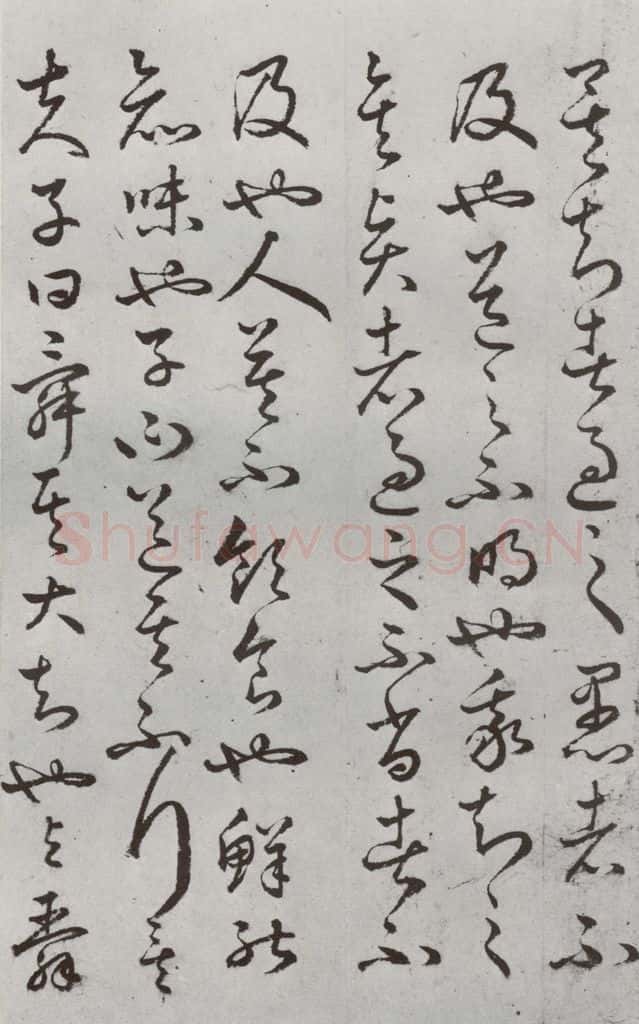 矣知者過之愚者不
及也道之不明也我知之
矣賢者過之不肖者不
及也人莫不飲食也鮮能
知味也子曰道其不行矣
夫子曰舜其大知也與舜
Shufawang.CN